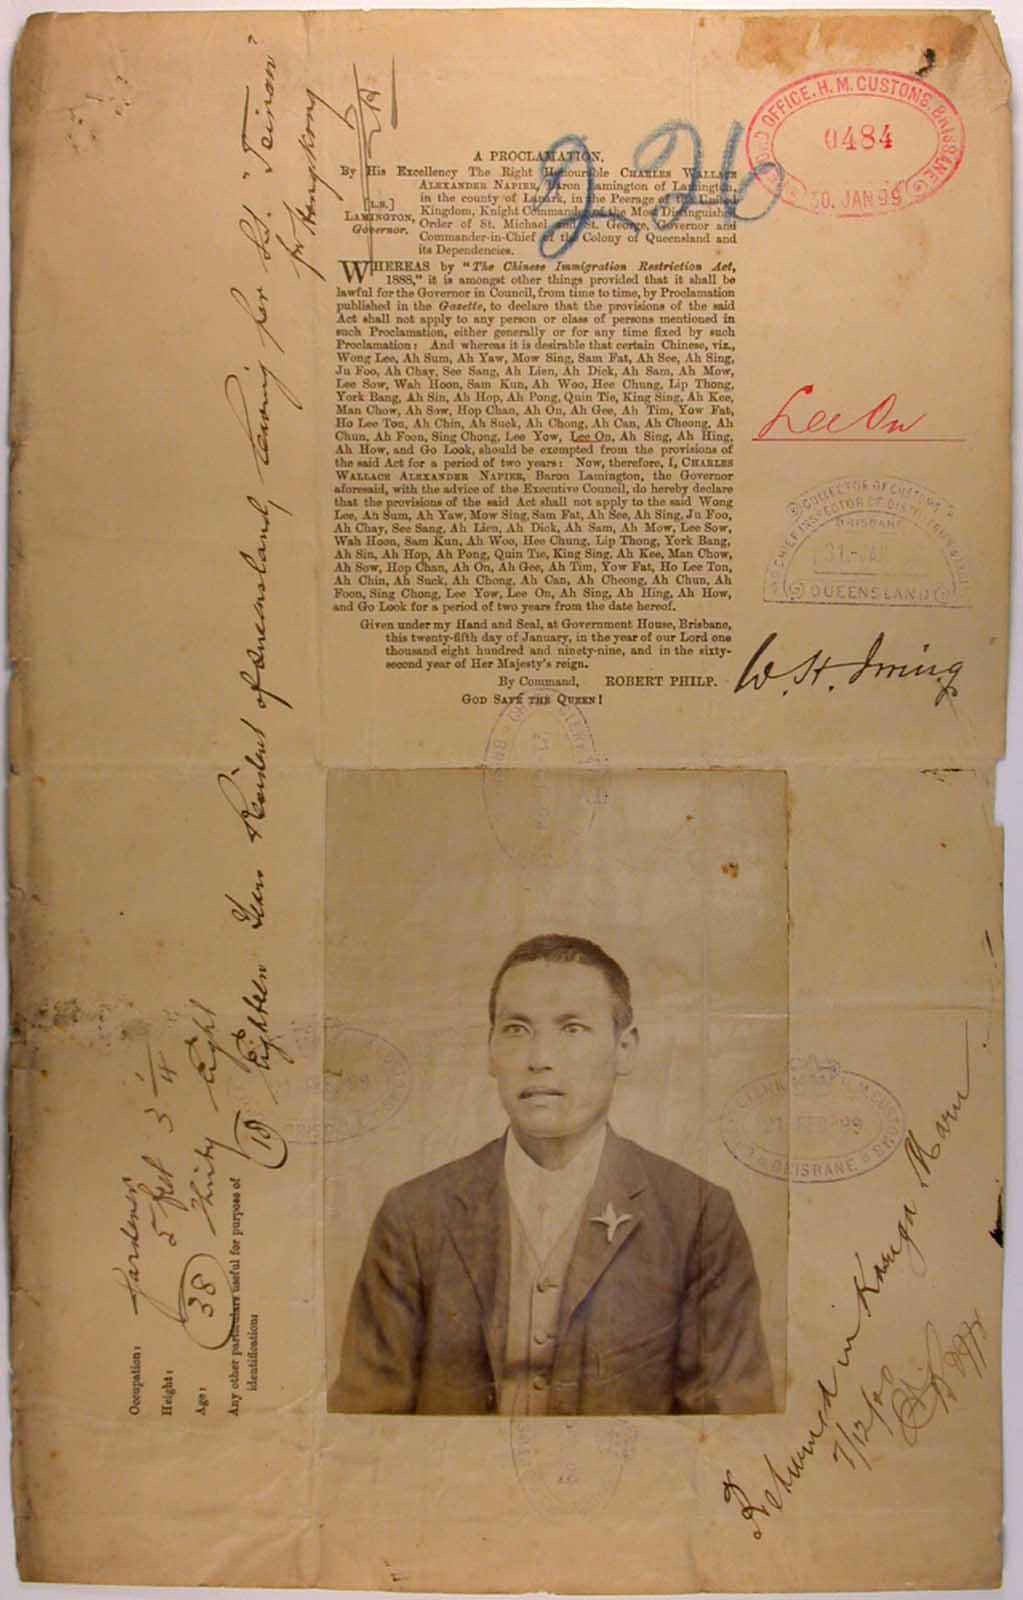 RECORD OFFICE. H. M. CUSTOMS. BRISBANE
0484
30. JAN 99
226
A PROCLAMATION.
By His Excellency The Right Honourable CHARLES WALLACE
ALEXANDER NAPIER, Baron Lamington of Lamington,
in the county of Lanark, in the Peerage of the United
[L.S.] Kingdom, Knight Commander of the Most Distinguished
LAMINGTON, Order of St. Michael and St. George, Governor and
Governor. Commander-in-Chief of the Colony of Queensland and
its Dependencies.
WHEREAS by "The Chinese Immigration Restriction Act,
1888," it is amongst other things provided that it shall be
lawful for the Governor in Council, from time to time, by Proclamation
published in the Gazette, to declare that the provisions of the said
Act shall not apply to any person or class of persons mentioned in
such Proclamation, either generally or for any time fixed by such
Proclamation: And whereas it is desirable that certain Chinese, viz.,
Wong Lee, Ah Sum, Ah Yaw, Mow Sing, Sam Fat, Ah See, Ah Sing,
Ju Foo, Ah Chay, See Sang, Ah Lien, Ah Dick, Ah Sam, Ah Mow,
Lee Sow, Wah Hoon, Sam Kun, Ah Woo, Hee Chung, Lip Thong,
York Bang, Ah Sin, Ah Hop, Ah Pong, Quin Tie, King Sing, Ah Kee,
Man Chow, Ah Sow, Hop Chan, Ah On, Ah Gee, Ah Tim, Yow Fat,
Ho Lee Ton, Ah Chin, Ah Suck, Ah Chong, Ah Can, Ah Cheong, Ah
Chun, Ah Foon, Sing Chong, Lee Yow, Lee On, Ah Sing, Ah Hing,
Ah How, and Go Look, should be exempted from the provisions of
the said Act for a period of two years: Now, therefore, I, CHARLES
WALLACE ALEXANDER NAPIER, Baron Lamington, the Governor
aforesaid, with the advice of the Executive Council, do hereby declare
that the provisions of the said Act shall not apply to the said Wong
Lee, Ah Sum, Ah Yaw, Mow Sing, Sam Fat, Ah See, Ah Sing, Ju Foo,
Ah Chay, See Sang, Ah Lien, Ah Dick, Ah Sam, Ah Mow, Lee Sow,
Wah Hoon, Sam Kun, Ah Woo, Hee Chung, Lip Thong, York Bang,
Ah Sin, Ah Hop, Ah Pong, Quin Tie, King Sing, Ah Kee, Man Chow,
Ah Sow, Hop Chan, Ah On, Ah Gee, Ah Tim, Yow Fat, Ho Lee Ton,
Ah Chin, Ah Suck, Ah Chong, Ah Can, Ah Cheong, Ah Chun, Ah
Foon, Sing Chong, Lee Yow, Lee On, Ah Sing, Ah Hing, Ah How,
and Go Look for a period of two years from the date hereof.
Given under my Hand and Seal, at Government House, Brisbane,
this twenty-fifth day of January, in the year of our Lord one
thousand eight hundred and ninety-nine, and in the sixty-
second year of Her Majesty's reign.
By Command, ROBERT PHILP.
GOD SAVE THE QUEEN!
Lee On
COLLECTOR OF CUSTOMS
CHIEF INSPECTOR OF DISTILLERIES
BRISBANE
31-JAN
QUEENSLAND
W. H. Irving
Occupation: Gardener
Height: 5 feet 3 1/4
Age: 38 Thirty Eight
Any other particulars useful for purpose of
identification:
18 Eighteen Years Resident of Queensland, leaving per S.S. "Tsinan"
for Hongkong
H.M. CUSTOMS
FEB 99
BRISBANE
Returned in Kasuga Maru
7/12/0